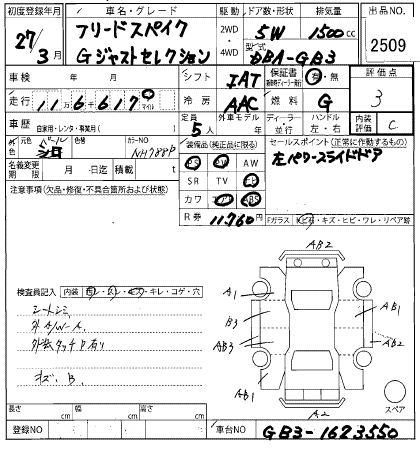 初度登録年月
27/3月
車名・グレード
フリードスパイク
Gジャストセレクション
駆動
2WD
4WD
ドア数・形状
5W
排気量
1500cc
型式
DBA-GB3
出品NO.
2509
車検 年 月
シフト
IAT
保証書
有・無
評価点
3
走行
11万6千617
マイル
冷房
AAC
燃料
G
車歴
自家用・レンタ・事業用( )
定員
5人
外車モデル年
ディーラー・並行
ハンドル
左・右
内装評価
C
元色
パール
シロ
色替
カラーNO
NH788P
名義変更期限 月 日迄
積載 t
装備品(純正品に限る)
PS PW AW
SR TV ナビ
カワ エアB ABS
R券
11,760円
セールスポイント(正常に作動するもの)
左パワースライドドア
注意事項(欠品・修復・不具合箇所および状態)
Fガラス
飛石・キズ・ヒビ・ワレ・リペア跡
検査員記入
内装
・キレ・コゲ・穴
シートシミ
外A/W-A
外装タッチP有り
キズ、B
AB2
A1
B3
AB3
AB1
AB1
AB2
A2
スペア
長さ cm
幅 cm
高さ cm
登録NO
車台NO
GB3-1623550